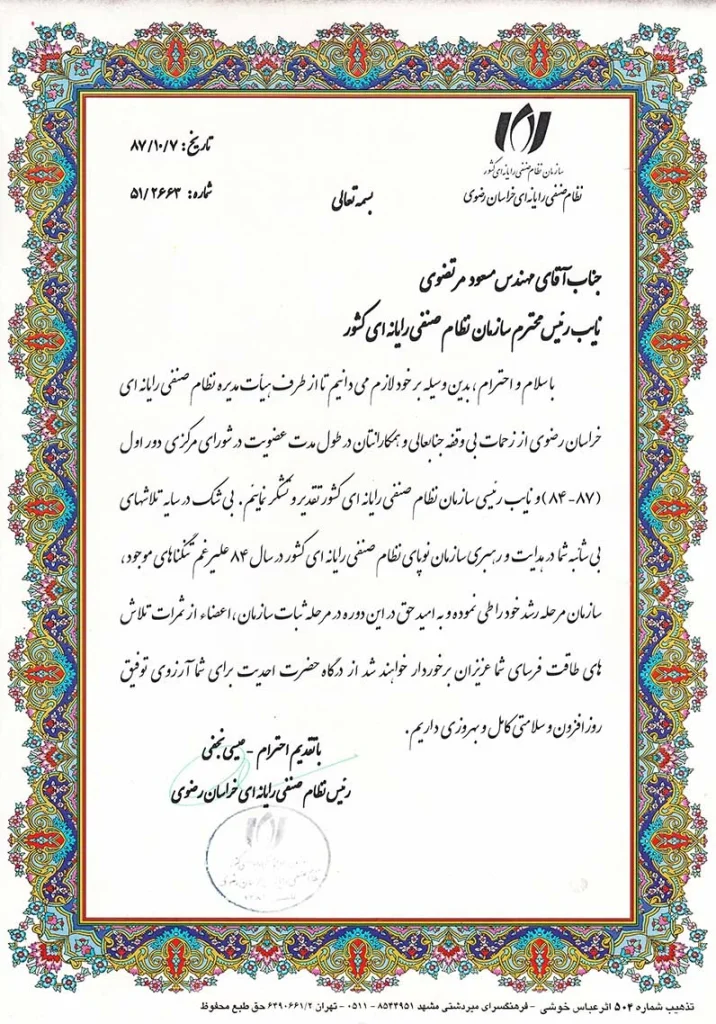 سازمان نظام صنفی رایانه ای کشور
نظام صنفی رایانه ای خراسان رضوی
تاریخ: ۸۷/۱۰/۷
شماره: ۵۱/۲۶۶۳
بسمه تعالی
جناب آقای مهندس مسعود مرتضوی
نایب رئیس محترم سازمان نظام صنفی رایانه ای کشور
با سلام و احترام، بدین وسیله بر خود لازم می دانیم تا از طرف هیأت مدیره نظام صنفی رایانه ای
خراسان رضوی از زحمات بی وقفه جنابعالی و همکارانتان در طول مدت عضویت در شورای مرکزی دور اول
(۸۷-۸۴) و نایب رئیسی سازمان نظام صنفی رایانه ای کشور تقدیر و تشکر نمایئم. بی شک در سایه تلاشهای
بی شائبه شما در هدایت و رهبری سازمان نوپای نظام صنفی رایانه ای کشور در سال ۸۴ علیرغم تنگناهای موجود،
سازمان مرحله رشد خود را طی نموده و به امید حق در این دوره در مرحله ثبات سازمان، اعضاء از ثمرات تلاش
های طاقت فرسای شما عزیزان برخوردار خواهند شد از درگاه حضرت احدیت برای شما آرزوی توفیق
روز افزون و سلامتی کامل و بهروزی داریم.
با تقدیم احترام - عیسی نجفی
رئیس نظام صنفی رایانه ای خراسان رضوی
تذهیب شماره ۵۰۴ اثر عباس خوشی - فرهنگسرای میردشتی مشهد ۸۵۴۴۹۵۱ - ۰۵۱۱ - تهران ۶۴۹۰۶۶۱/۲ حق طبع محفوظ